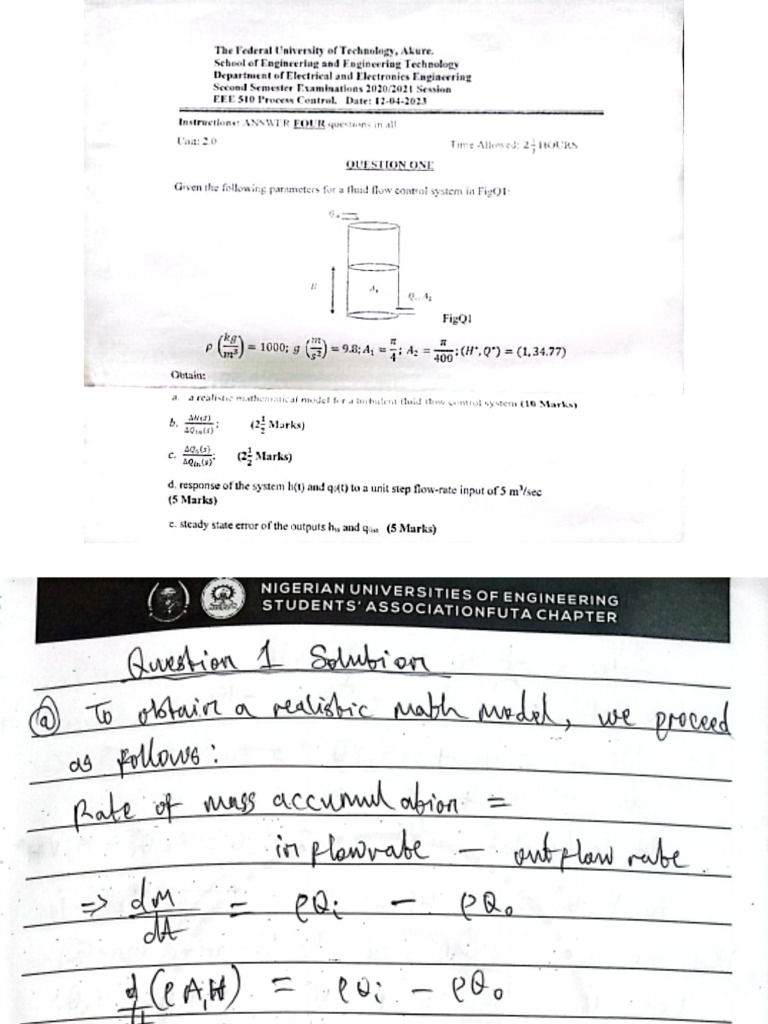 The Federal University of Technology, Akure.
School of Engineering and Engineering Technology
Department of Electrical and Electronics Engineering
Second Semester Examinations 2020/2021 Session
EEE 510 Process Control. Date: 12-04-2023
Instructions: ANSWER FOUR questions in all
Unit: 2.0 Time Allowed: 2½ HOURS
QUESTION ONE
Given the following parameters for a fluid flow control system in FigQ1:
H
A₁
Q₀, A₂
FigQ1
ρ (kg/m³) = 1000; g (m/s²) = 9.8; A₁ = π/4; A₂ = π/400; (H*, Q*) = (1, 34.77)
Obtain:
a. a realistic mathematical model for a turbulent fluid flow control system (10 Marks)
b. ΔH(s)/ΔQᵢₙ(s); (2½ Marks)
c. ΔQ₀(s)/ΔQᵢₙ(s); (2½ Marks)
d. response of the system h(t) and q₀(t) to a unit step flow-rate input of 5 m³/sec
(5 Marks)
e. steady state error of the outputs hₛₛ and (5 Marks)
NIGERIAN UNIVERSITIES OF ENGINEERING
STUDENTS' ASSOCIATIONFUTA CHAPTER
Question 1 Solution
(a) To obtain a realistic math model, we proceed
as follows:
Rate of mass accumulation =
inflowrate - outflow rate.
=> dM/dt = ρQᵢ - ρQ₀
d/dt (ρA₁H) = ρQᵢ - ρQ₀